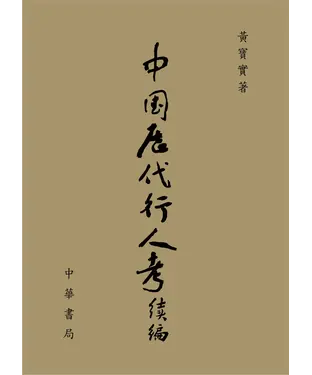 黃寶實著
中国歷代行人考續编
中華書局